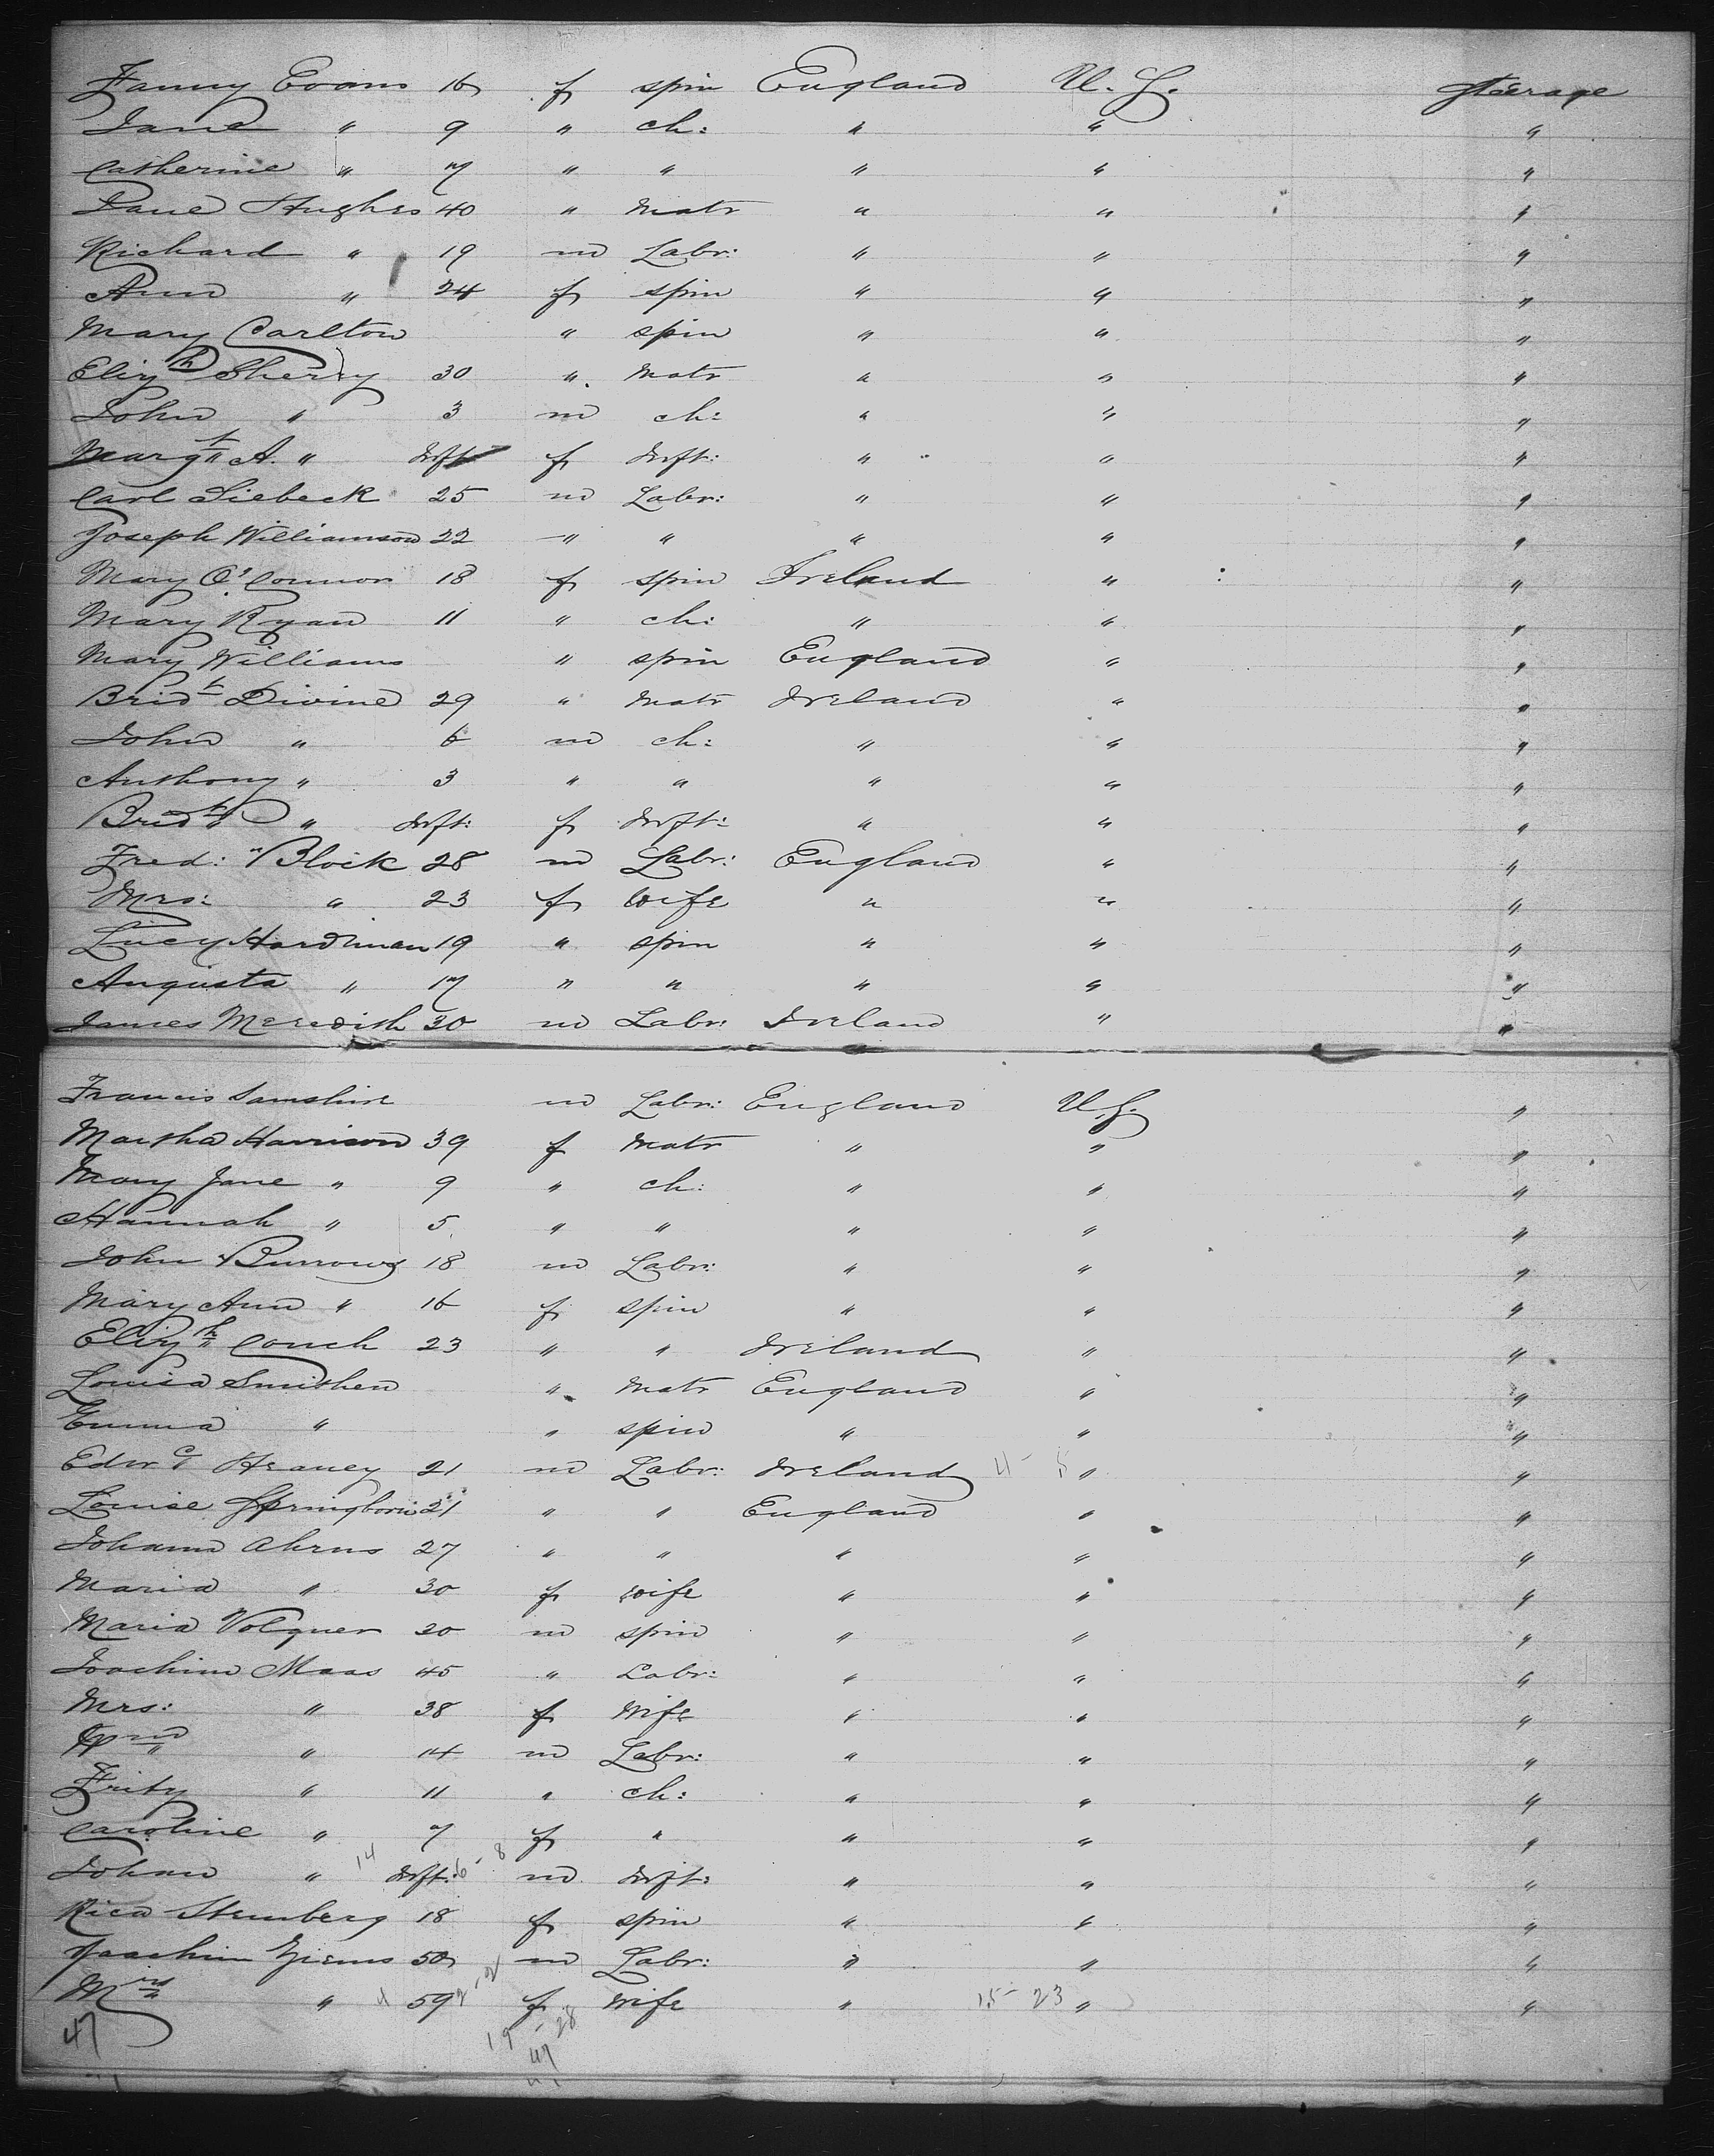 Fanny Evans 16 f spin England U.S. Steerage
Jane " 9 " ch: " " "
Catherine " 7 " " " " "
Jane Hughes 40 " Matr " " "
Richard " 19 m Labr: " " "
Ann " 24 f spin " " "
Mary Carlton " spin " " "
Elizth Sherry 30 " Matr " " "
John " 3 m ch: " " "
Margt A. " Inft f Inft: " " "
Carl Siebeck 25 m Labr: " " "
Joseph Williamson 22 " " " " "
Mary O'Connor 18 f spin Ireland " "
Mary Ryan 11 " ch: " " "
Mary Williams " spin England " "
Bridt Divine 29 " Matr Ireland " "
John " 6 m ch: " " "
Anthony " 3 " " " " "
Bridt " Inft: f Inft: " " "
Fred: Block 28 m Labr: England " "
Mrs: " 23 f wife " " "
Lucy Hardiman 19 " spin " " "
Augusta " 17 " " " " "
James Meredith 30 m Labr: Ireland " "
Francis Samshire m Labr: England U.S. "
Martha Harrison 39 f Matr " " "
Mary Jane " 9 " ch: " " "
Hannah " 5 " " " " "
John Burrows 18 m Labr: " " "
Mary Ann " 16 f spin " " "
Elizh Couch 23 " " Ireland " "
Louisa Smithen " Matr England " "
Emma " " spin " " "
Edwd Heaney 21 m Labr: Ireland " "
Louise Springborn 21 " " England " "
Johann Ahrns 27 " " " " "
Maria " 30 f wife " " "
Maria Volquer 20 m spin " " "
Joachim Maas 45 " Labr: " " "
Mrs: " 38 f Wife " " "
" 14 m Labr: " " "
Fritz " 11 " ch: " " "
Caroline " 7 f " " " "
Johan " 14 Inft: 6-8 m Inft: " " "
Rica Sternberg 18 f spin " " "
Joachim Ziems 50 m Labr: " " "
Mrs " 59 f Wife " 15-23 " "
47 19-28
47